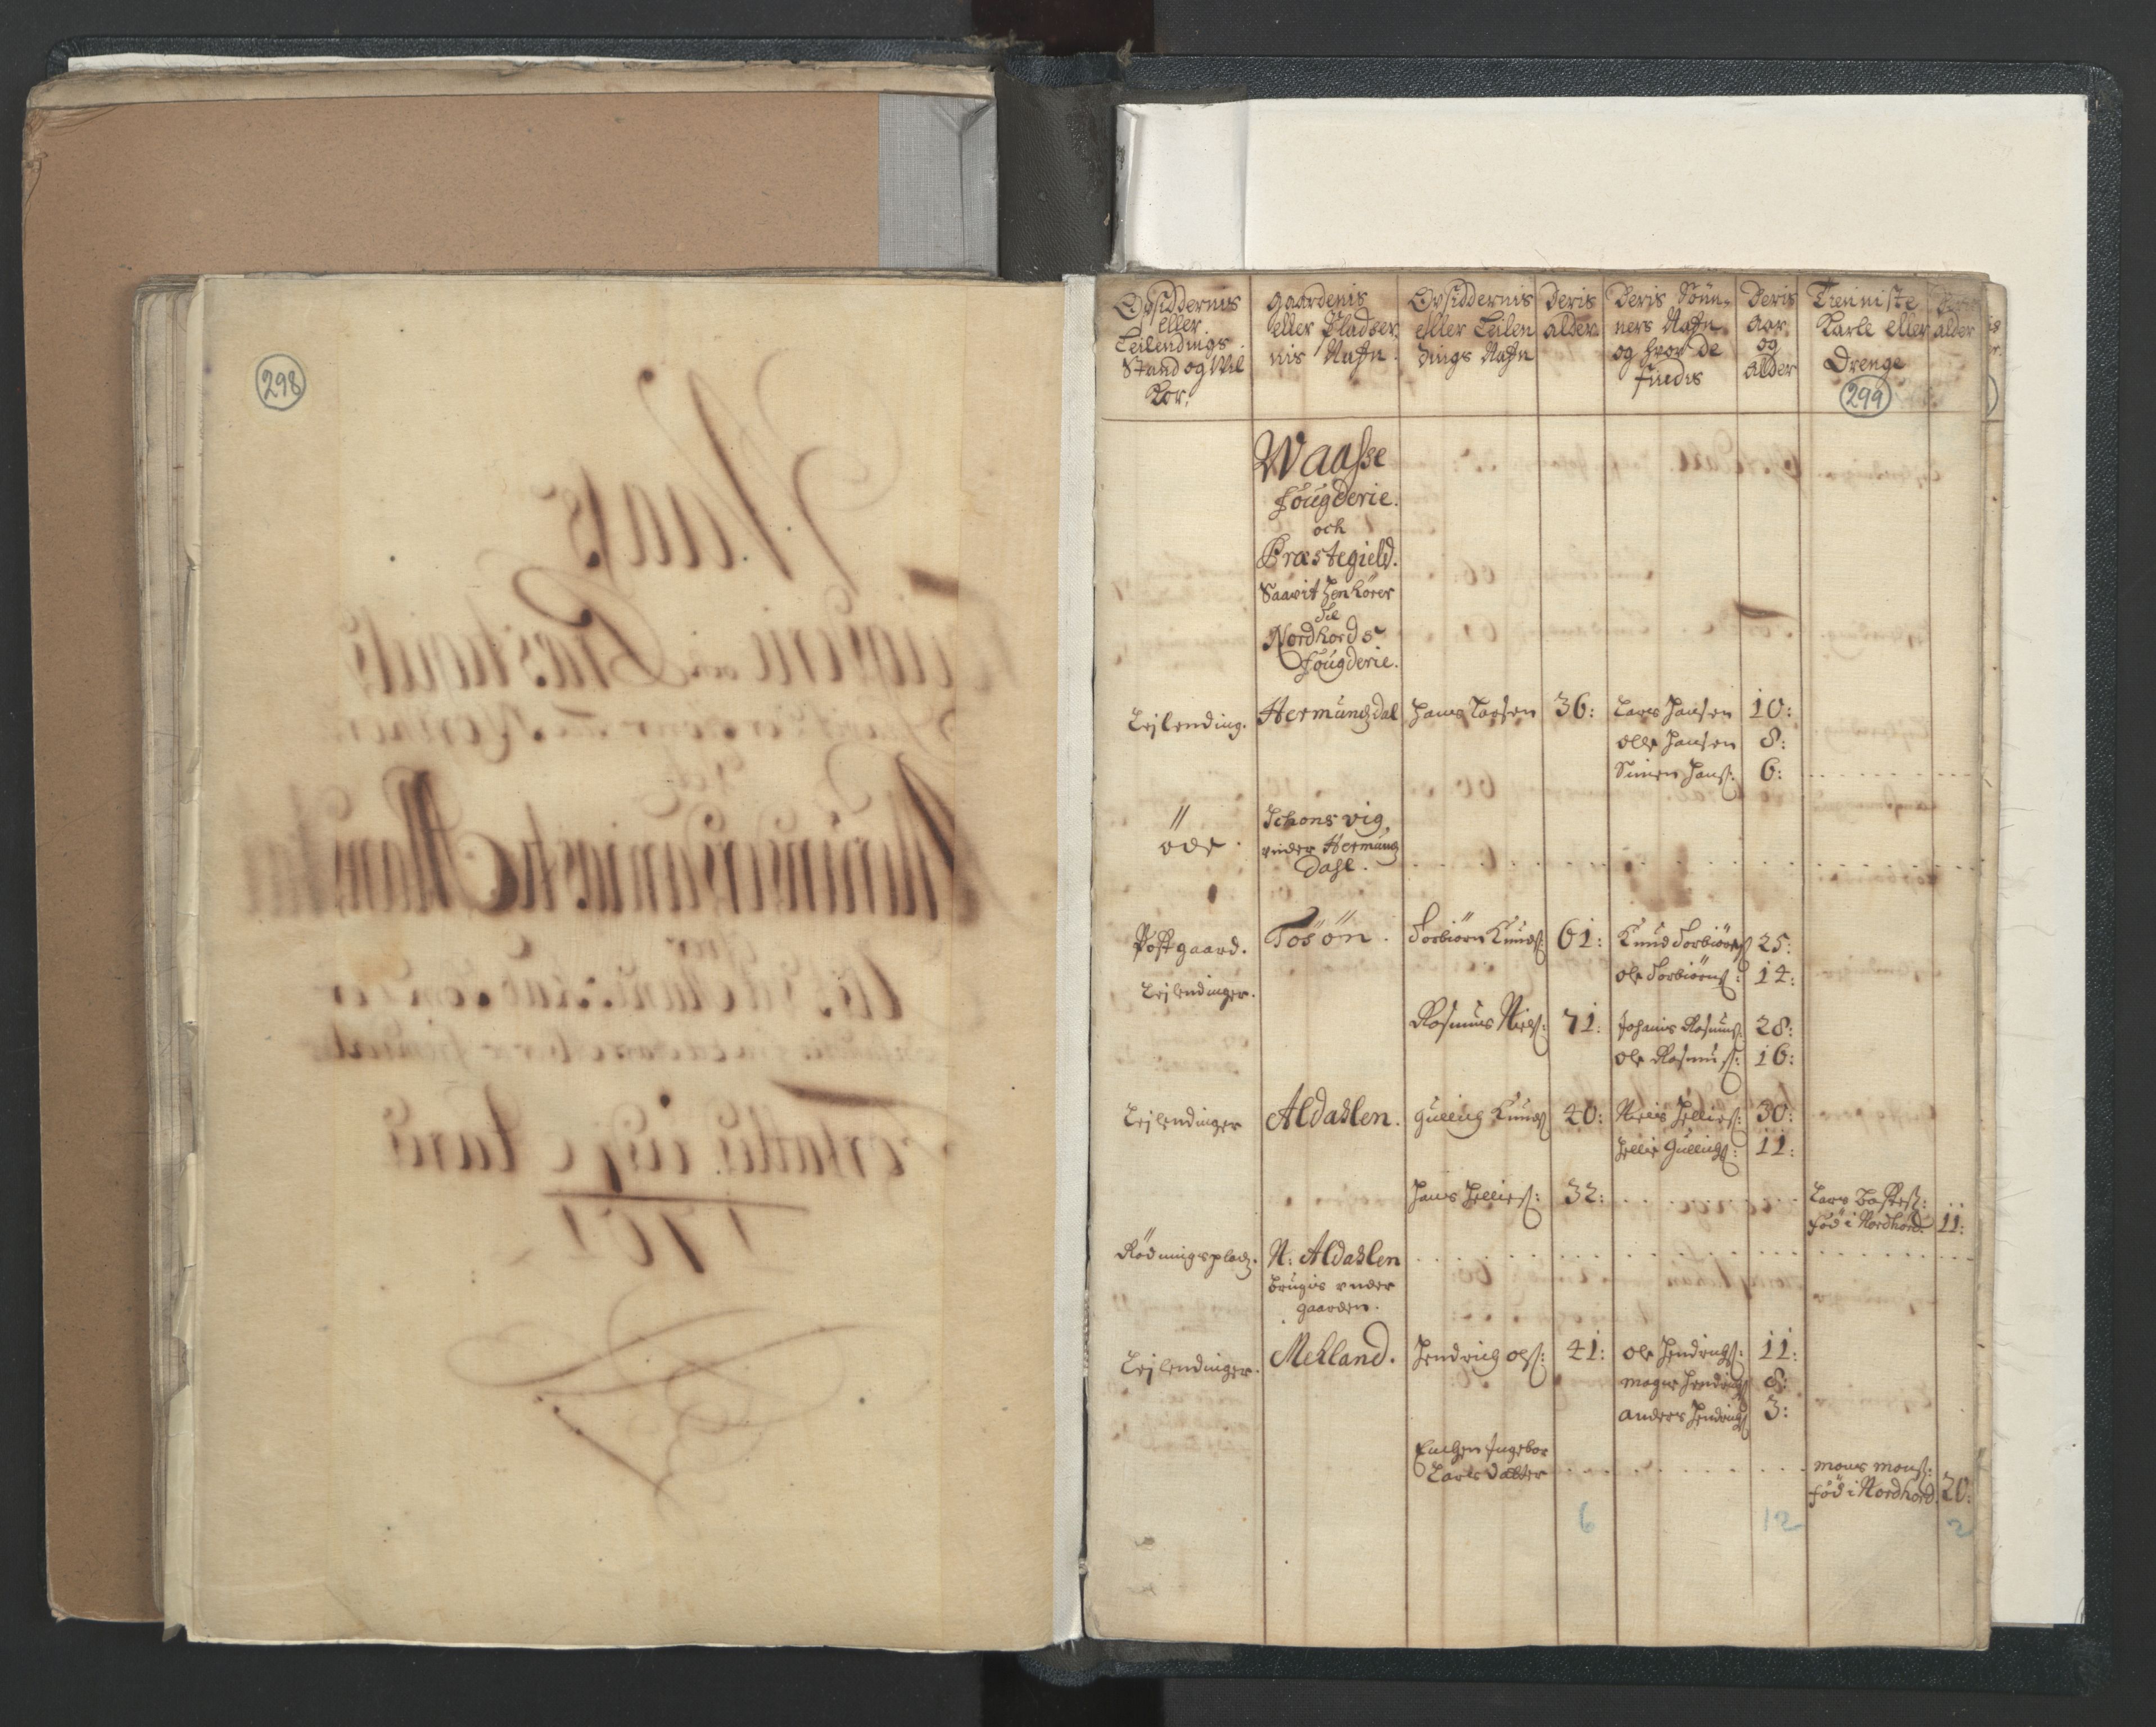 298
Opsiddernis
eller
Leilendings
Stand og Vil
Kor.
gaardenis
eller Pladser
nis Nafn
Opsiddernis
eller Leilen
dings Nafn
Deris
alder
Deris Sönn
ners Nafn
og hvor de
findis
Deris
aar
og
alder
Tienniste
Karle eller
Drenge
299
alder
Waasse
fougderie.
och
Præstegield.
Saavit henhörer
til
Nordhords
fougderie.
Leilending. Hermundsdal Hans Larsen 36: Lars Hansen 10:
Olle Hansen 8:
Simen Hans: 6:
"
öde
Schonsvig,
under Hermuns
Dahl.
Postgaard. Tosön. Torbiörn Knuds: 61: Knud Torbiörns 25:
Ole Torbiörns: 14:
Leilendinger.
Rasmus Niels: 71: Johanis Rasmus: 28:
Ole Rasmus: 16:
Leilendinger Aldahlen. Gulleig Knuds 40: Niels Hellies: 30:
Hellie Gulleigs: 11:
Hans Hellies: 32: Lars
föd i Nordhord 11:
Rödningsplads. N: Aldahlen
brugis under
gaarden.
Leilendinger. Mehland. Hendrich Ols: 41: Ole Hendrichs: 11:
Mogns Hendrichs 8:
Anders Hendrichs 3:
Enchen Ingebor
Larsdatter
Mons Mons:
föd i Nordhord. 20:
6 12 2